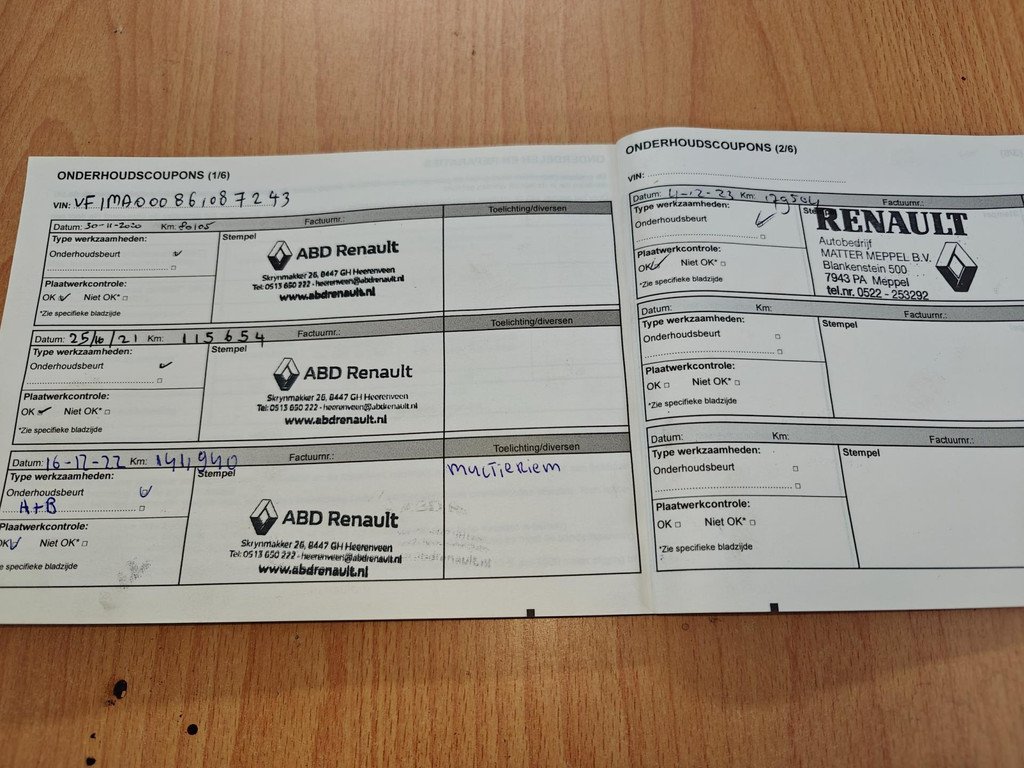 ONDERHOUDSCOUPONS (1/6)
VIN: VF1MA000861087243
Toelichting/diversen
Datum: 30-11-2020 Km: 80105 Factuurnr.:
Type werkzaamheden:
Stempel
Onderhoudsbeurt
ABD Renault
Skrynmakker 26, 8447 GH Heerenveen
Tel: 0513 650 222 - heerenveen@abdrenault.nl
www.abdrenault.nl
Plaatwerkcontrole:
OK Niet OK*
*Zie specifieke bladzijde
Toelichting/diversen
Datum: 25/10/21 Km: 115654 Factuurnr.:
Type werkzaamheden:
Stempel
Onderhoudsbeurt
ABD Renault
Skrynmakker 26, 8447 GH Heerenveen
Tel: 0513 650 222 - heerenveen@abdrenault.nl
www.abdrenault.nl
Plaatwerkcontrole:
OK Niet OK*
*Zie specifieke bladzijde
Toelichting/diversen
Datum: 16-12-22 Km: 141,940 Factuurnr.:
multieriem
Type werkzaamheden:
Stempel
Onderhoudsbeurt
A+B
ABD Renault
Skrynmakker 26, 8447 GH Heerenveen
Tel: 0513 650 222 - heerenveen@abdrenault.nl
www.abdrenault.nl
Plaatwerkcontrole:
OK Niet OK*
e specifieke bladzijde
ONDERHOUDSCOUPONS (2/6)
VIN:
Datum: 4-12-23 Km: Factuurnr.:
Type werkzaamheden:
Onderhoudsbeurt
RENAULT
Autobedrijf
MATTER MEPPEL B.V.
Blankenstein 500
7943 PA Meppel
tel.nr. 0522 - 253292
Plaatwerkcontrole:
OK Niet OK*
*Zie specifieke bladzijde
Datum: Km: Factuurnr.:
Type werkzaamheden:
Stempel
Onderhoudsbeurt
Plaatwerkcontrole:
OK Niet OK*
*Zie specifieke bladzijde
Datum: Km: Factuurnr.:
Type werkzaamheden:
Stempel
Onderhoudsbeurt
Plaatwerkcontrole:
OK Niet OK*
*Zie specifieke bladzijde